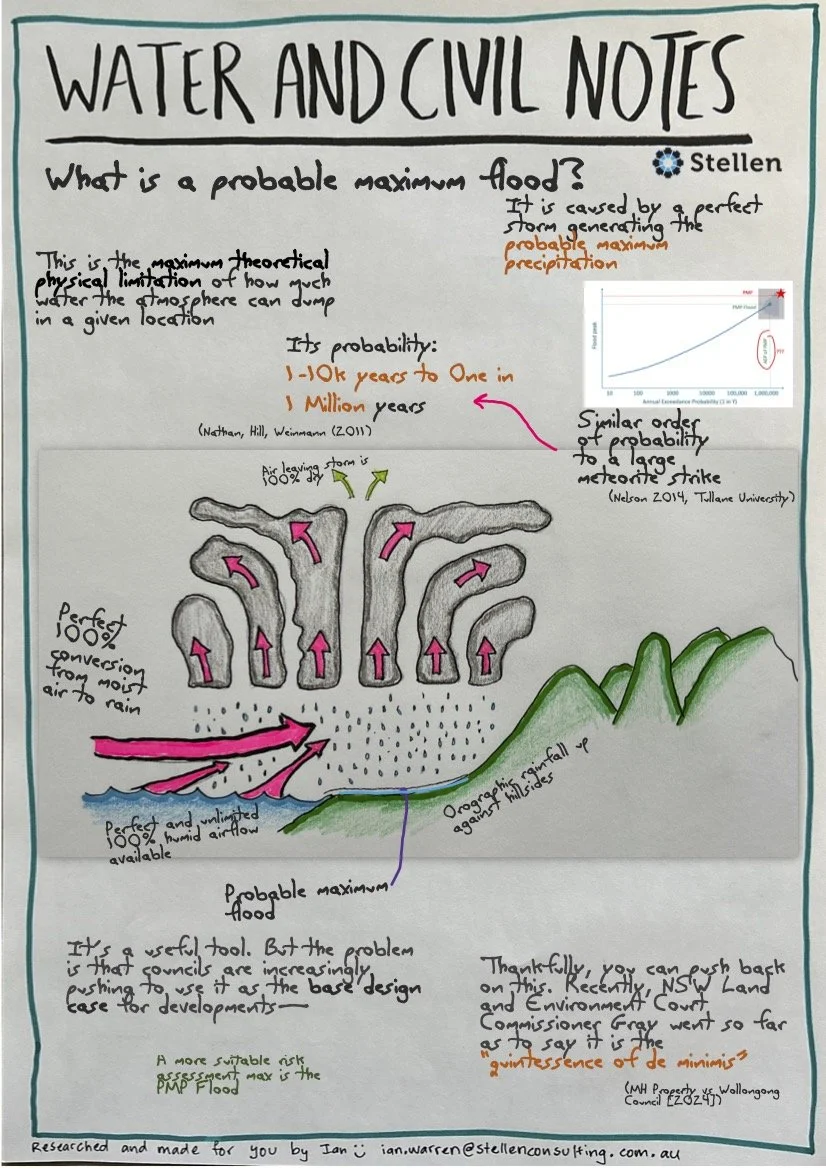 WATER AND CIVIL NOTES
Stellen
What is a probable maximum flood?
It is caused by a perfect
storm generating the
probable maximum
precipitation
This is the maximum theoretical
physical limitation of how much
water the atmosphere can dump
in a given location
PMF
PMP Flood
Flood peak
AEP of PMP
???
10
100
1000
10000
100,000
1,000,000
Annual Exceedance Probability (1 in Y)
Its probability:
1-10k years to One in
1 Million years
(Nathan, Hill, Weinmann (2011)
Similar order
of probability
to a large
meteorite strike
(Nelson 2014, Tullane University)
Air leaving storm is
100% dry
Perfect
100%
conversion
from moist
air to rain
Perfect and unlimited
100% humid airflow
available
Orographic rainfall up
against hillsides
Probable maximum
flood
It's a useful tool. But the problem
is that councils are increasingly
pushing to use it as the base design
case for developments—
A more suitable risk
assessment max is the
PMP Flood
Thankfully, you can push back
on this. Recently, NSW Land
and Environment Court
Commissioner Gray went so far
as to say it is the
"quintessence of de minimis"
(MH Property vs Wollongong
Council [2024])
Researched and made for you by Ian ian.warren@stellenconsulting.com.au